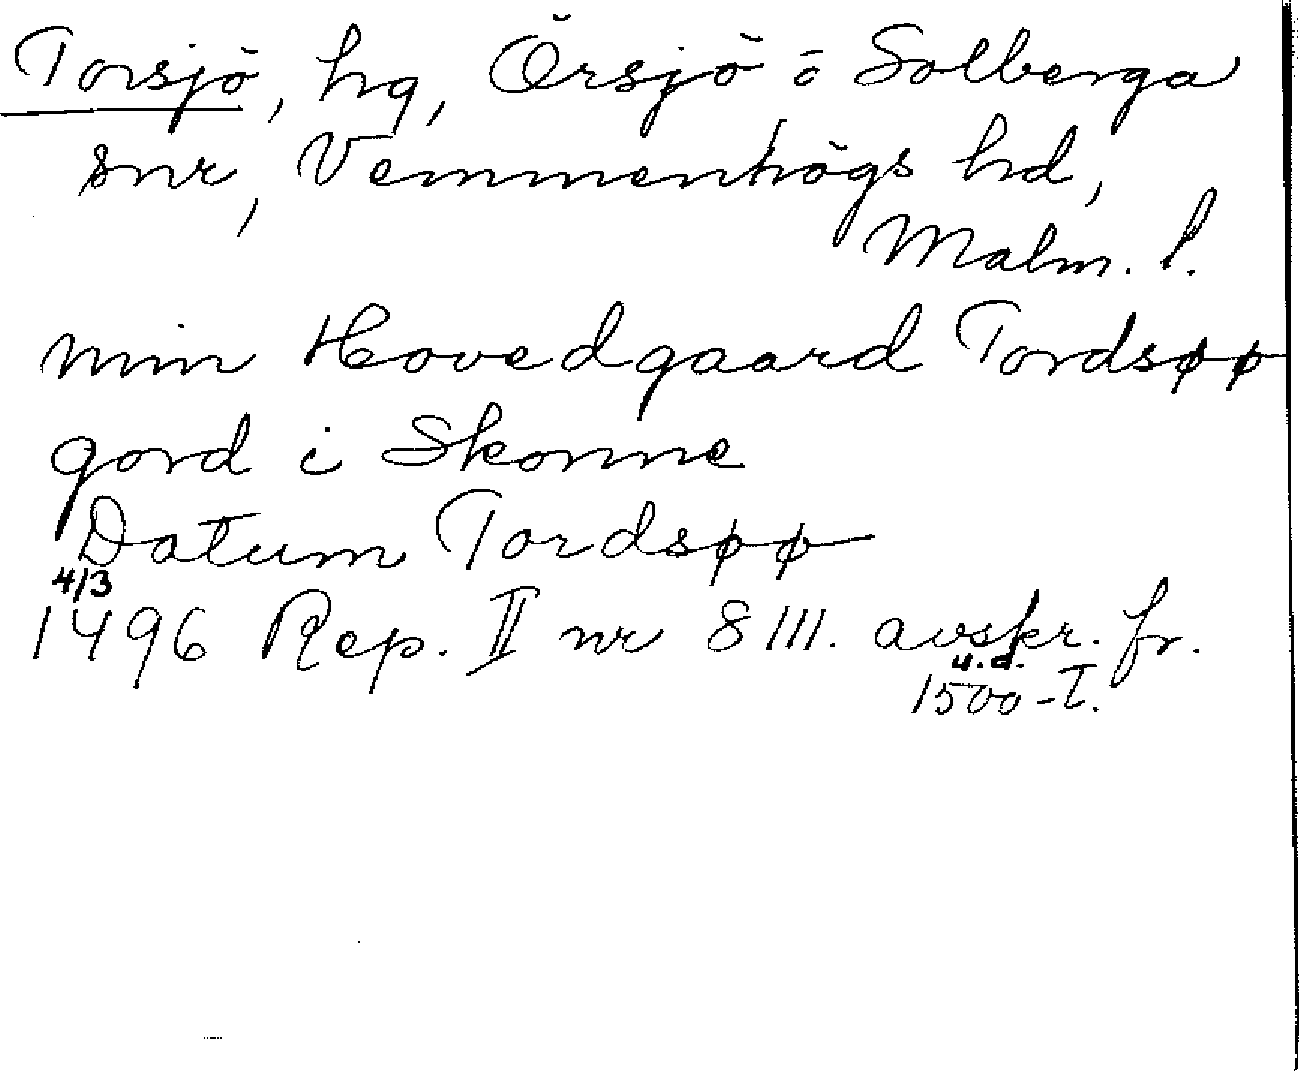 Torsjö, hg, Örsjö o Solberga
snr, Vemmenhögs hd,
Malm. l.
min Hovedgaard Tordsøø
gord i Skonne
Datum Tordsøø
4/3
1496 Rep. II nr 8111. avskr. fr.
u.d.
1500-T.